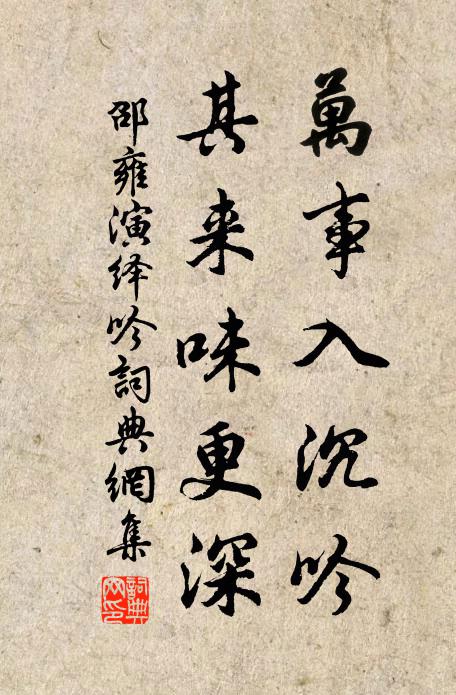 萬事入沉吟
其来味更深
邵雍演绎吟詞典網集
詞典網印